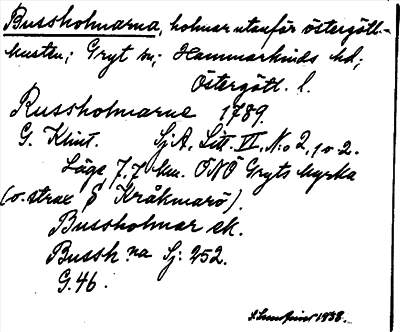 Bussholmarna, holmar utanför östergötl.-
kusten; Gryt sn; Hammarkinds hd;
Östergötl. l.
Russholmarne 1789.
G. Klint. Sj.A, Litt. II, N:o 2, 1 o 2.
Läge 7.7 km. ONÖ Gryts kyrka
(o. strax S Kråkmarö).
Bussholmar ek.
Bussh:na Sj: 252.
G.46.
1938.